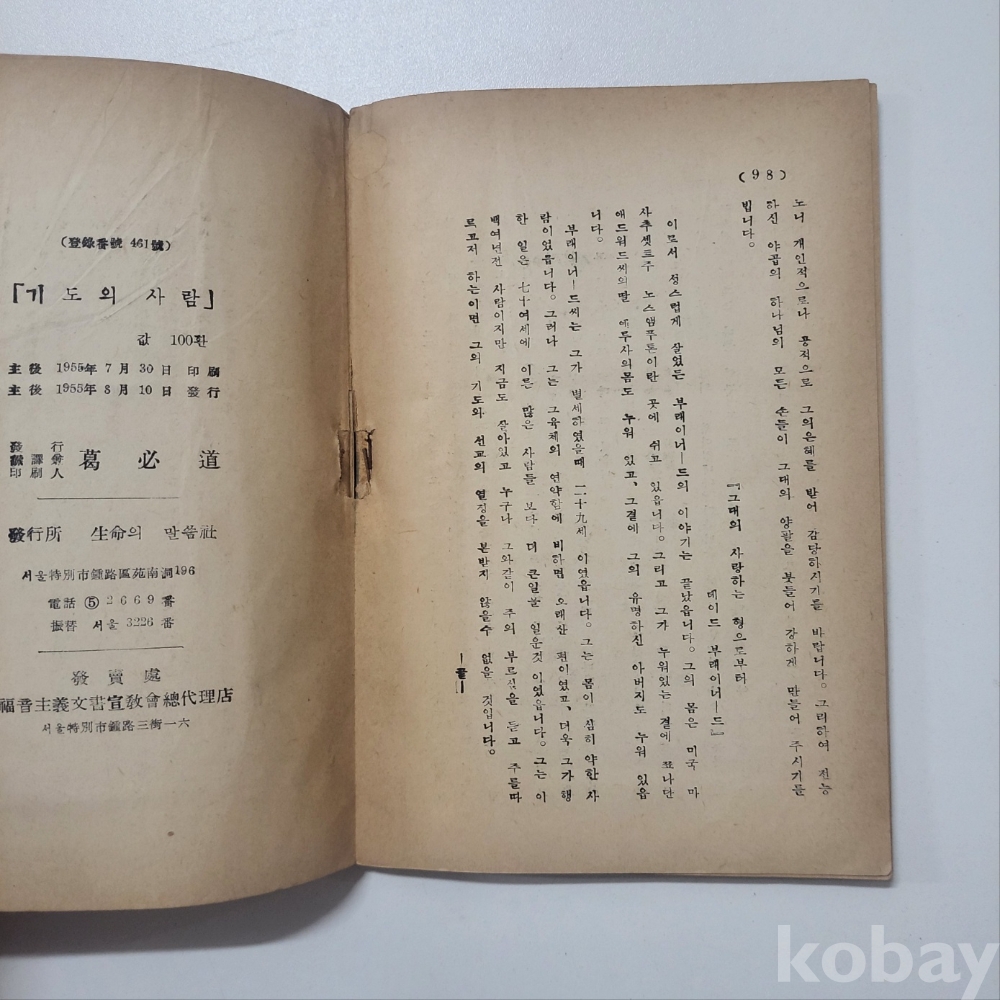 (98)
노니 개인적으로나 공적으로 그의은혜를 받어 감당하시기를 바랍니다。그리하여 전능
하신 야곱의 하나님의 모든 손들이 그대의 양팔을 붓들어 강하게 만들어 주시기를
빕니다。
『그대의 사랑하는 형으로부터
데이드 부래이너ㅡ드』
이로서 성스럽게 살었든 부래이너ㅡ드의 이야기는 끝났읍니다。그의 몸은 미국 마
사추셋트주 노스앰푸톤이란 곳에 쉬고 있읍니다。그리고 그가 누워있는 곁에 죠나단
애드워드씨의딸 에루사의몸도 누워 있고、그곁에 그의 유명하신 아버지도 누워 있읍
니다。
부래이너ㅡ드씨는 그가 별세하였을때 二十九세 이였읍니다。그는 몸이 심히 약한사
람이였읍니다。그러나 그는 그육체의 연약함에 비하면 오래산 편이였고、더욱 그가행
한 일은 七十여세에 이른 많은 사람들 보다 더 큰일을 일운것 이였읍니다。그는 이
백여년전 사람이지만 지금도 살아있고 누구나 그와같이 주의 부르심을 듣고 주를따
르고저 하는이면 그의 기도와 선교의 열정을 본받지 않을수 없을 것입니다。
ㅡ끝ㅡ
(登錄番號 461號)
「기도의 사람」
값 100환
主後 1955年 7月 30日 印刷
主後 1955年 8月 10日 發行
發行
飜譯兼
印刷人
葛必道
發行所 生命의 말씀社
서울特別市鍾路區苑南洞196
電話 ⑤ 2669番
振替 서울 3226番
發賣處
福音主義文書宣敎會總代理店
서울特別市鍾路三街一六
kobay